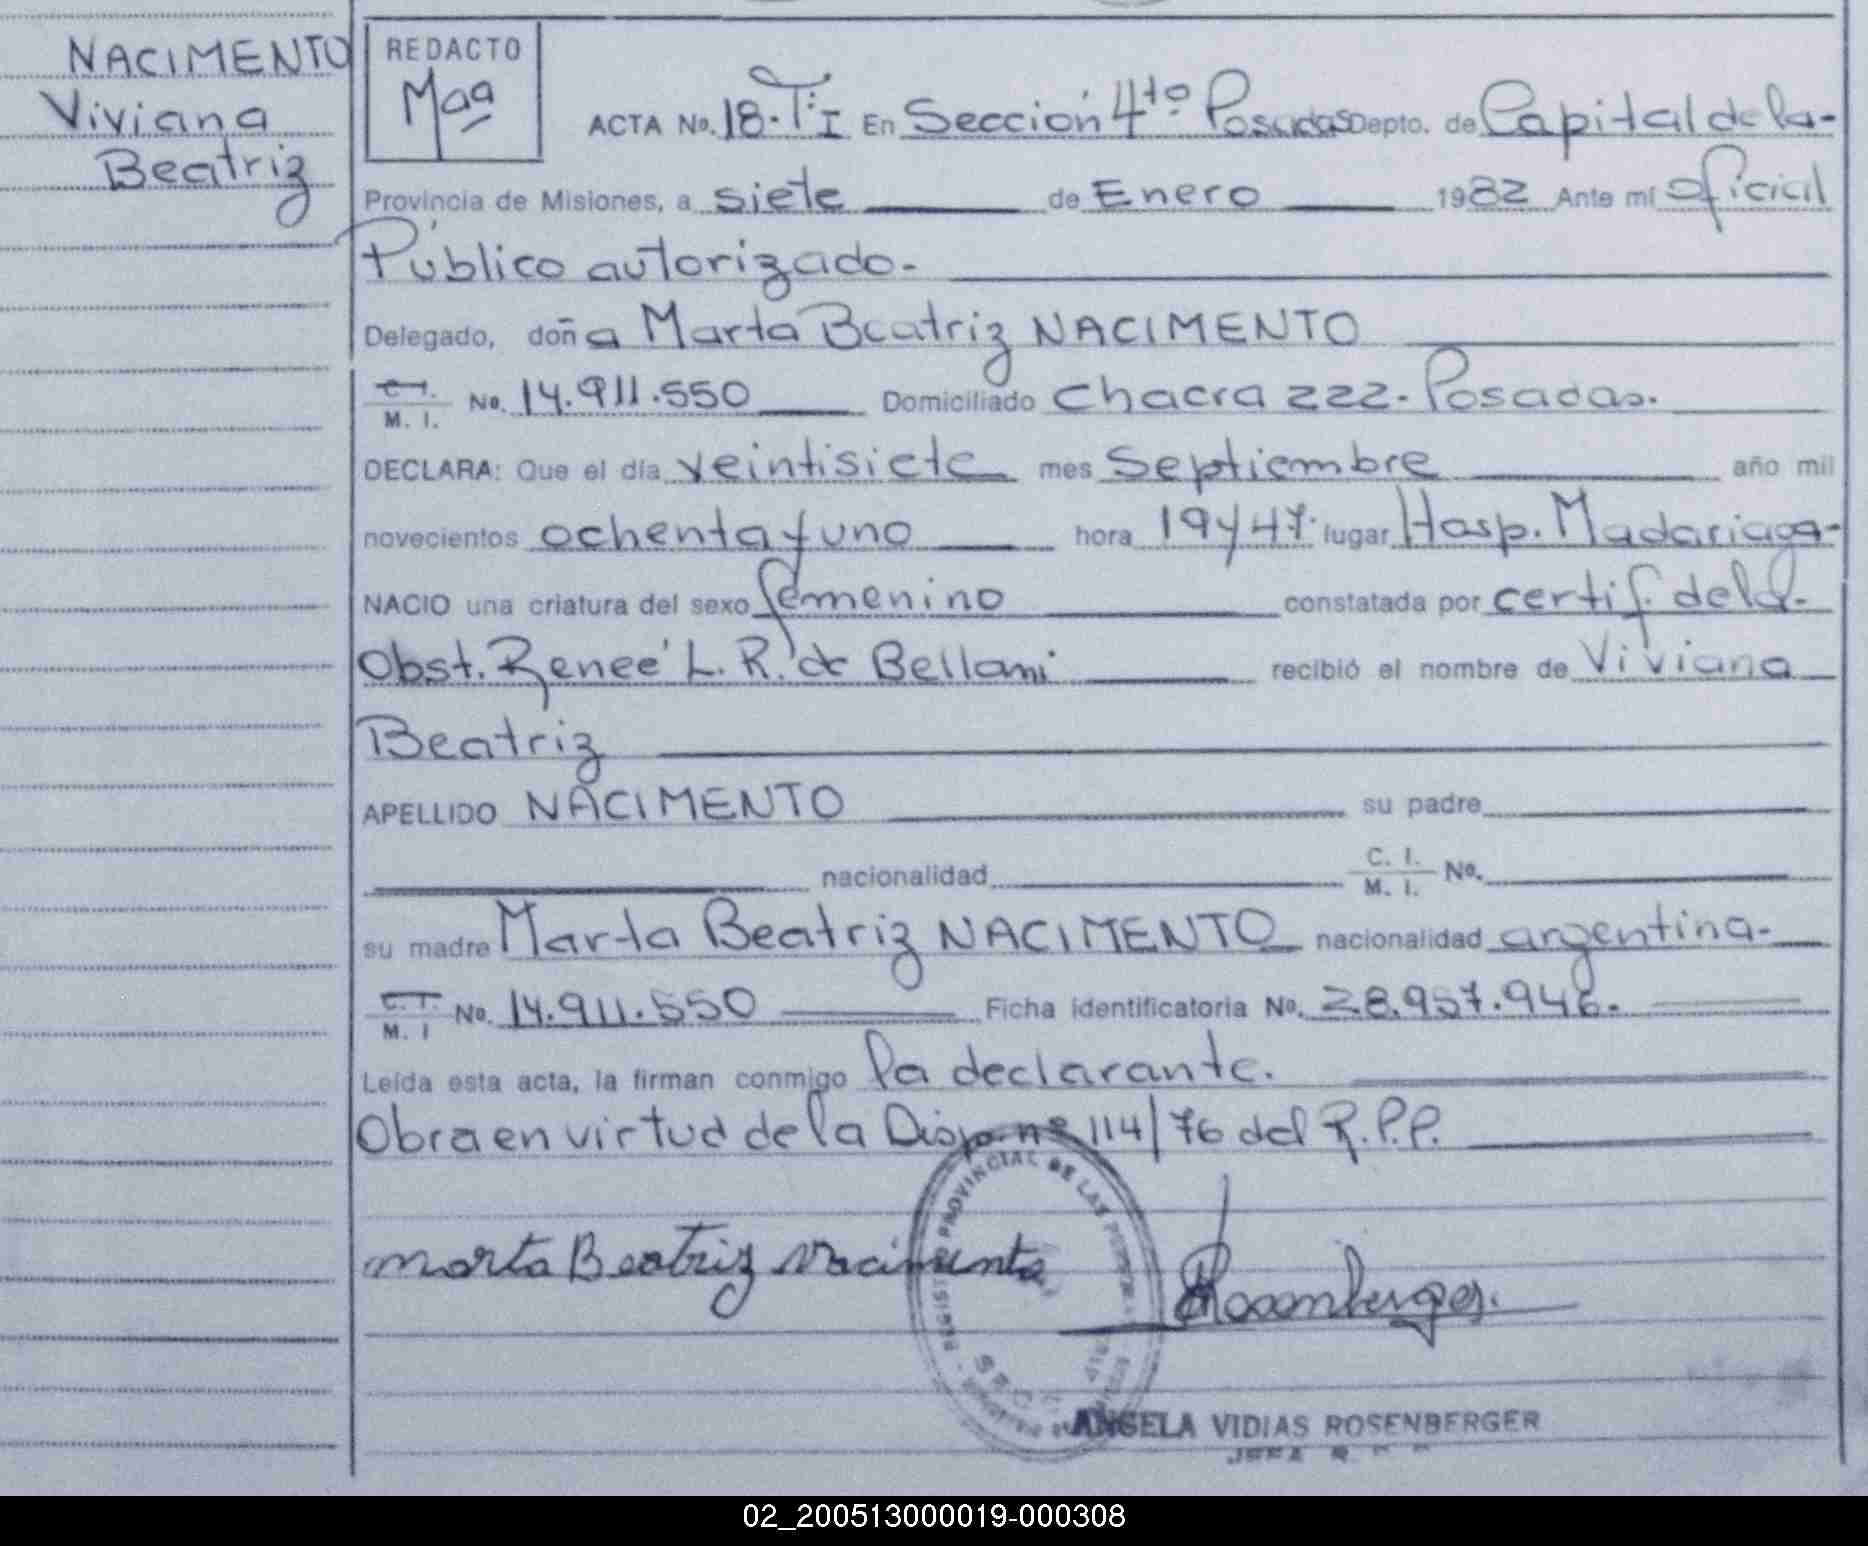 NACIMENTO
Viviana
Beatriz
REDACTO
Maa
ACTA No. 18. T: I En Sección 4to Posadas Depto. de Capital de la-
Provincia de Misiones, a siete de Enero 1982 Ante mí oficial
Público autorizado.-
Delegado, doña Marta Beatriz NACIMENTO
C.I. M. I. No. 14.911.550 Domiciliado chacra 222.- Posadas.
DECLARA: Que el día veintisiete mes Septiembre año mil
novecientos ochenta y uno hora 19 y 47. lugar Hosp. Madariaga-
NACIO una criatura del sexo femenino constatada por certif. de la-
Obst. Reneé L. R. de Bellami recibió el nombre de Viviana
Beatriz
APELLIDO NACIMENTO su padre
nacionalidad C. I. M. I. No.
su madre Marta Beatriz NACIMENTO nacionalidad argentina.-
C.I. M. I No. 14.911.550 Ficha identificatoria No. 28.957.946.
Leída esta acta, la firman conmigo la declarante.
Obra en virtud de la Disp. nº 114/76 del R.P.P.
REGISTRO PROVINCIAL DE LAS
Marta Beatriz Nacimento
Rosenberger.
ANGELA VIDIAS ROSENBERGER
JEFA R.
02_200513000019-000308